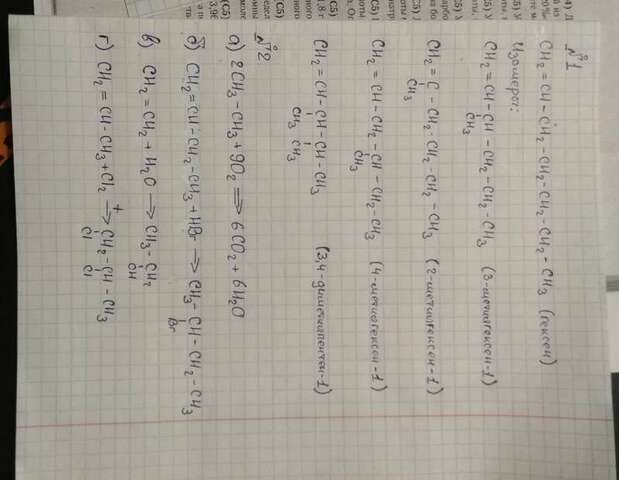 №1
CH2 = CH - CH2 - CH2 - CH2 - CH2 - CH3 (гексен)
Изомеры:
CH2 = CH - CH - CH2 - CH2 - CH3 (3-метилгексен-1)
CH3
CH2 = C - CH2 - CH2 - CH2 - CH3 (2-метилгексен-1)
CH3
CH2 = CH - CH2 - CH - CH2 - CH3 (4-метилгексен-1)
CH3
CH2 = CH - CH - CH - CH3 (3,4-диметилпентен-1)
CH3 CH3
№2
а) 2CH3 - CH3 + 9O2 ⟹ 6CO2 + 6H2O
б) CH2 = CH - CH2 - CH3 + HBr → CH3 - CH - CH2 - CH3
Br
в) CH2 = CH2 + H2O → CH3 - CH2
OH
г) CH2 = CH - CH3 + Cl2 → CH2 - CH - CH3
Cl Cl